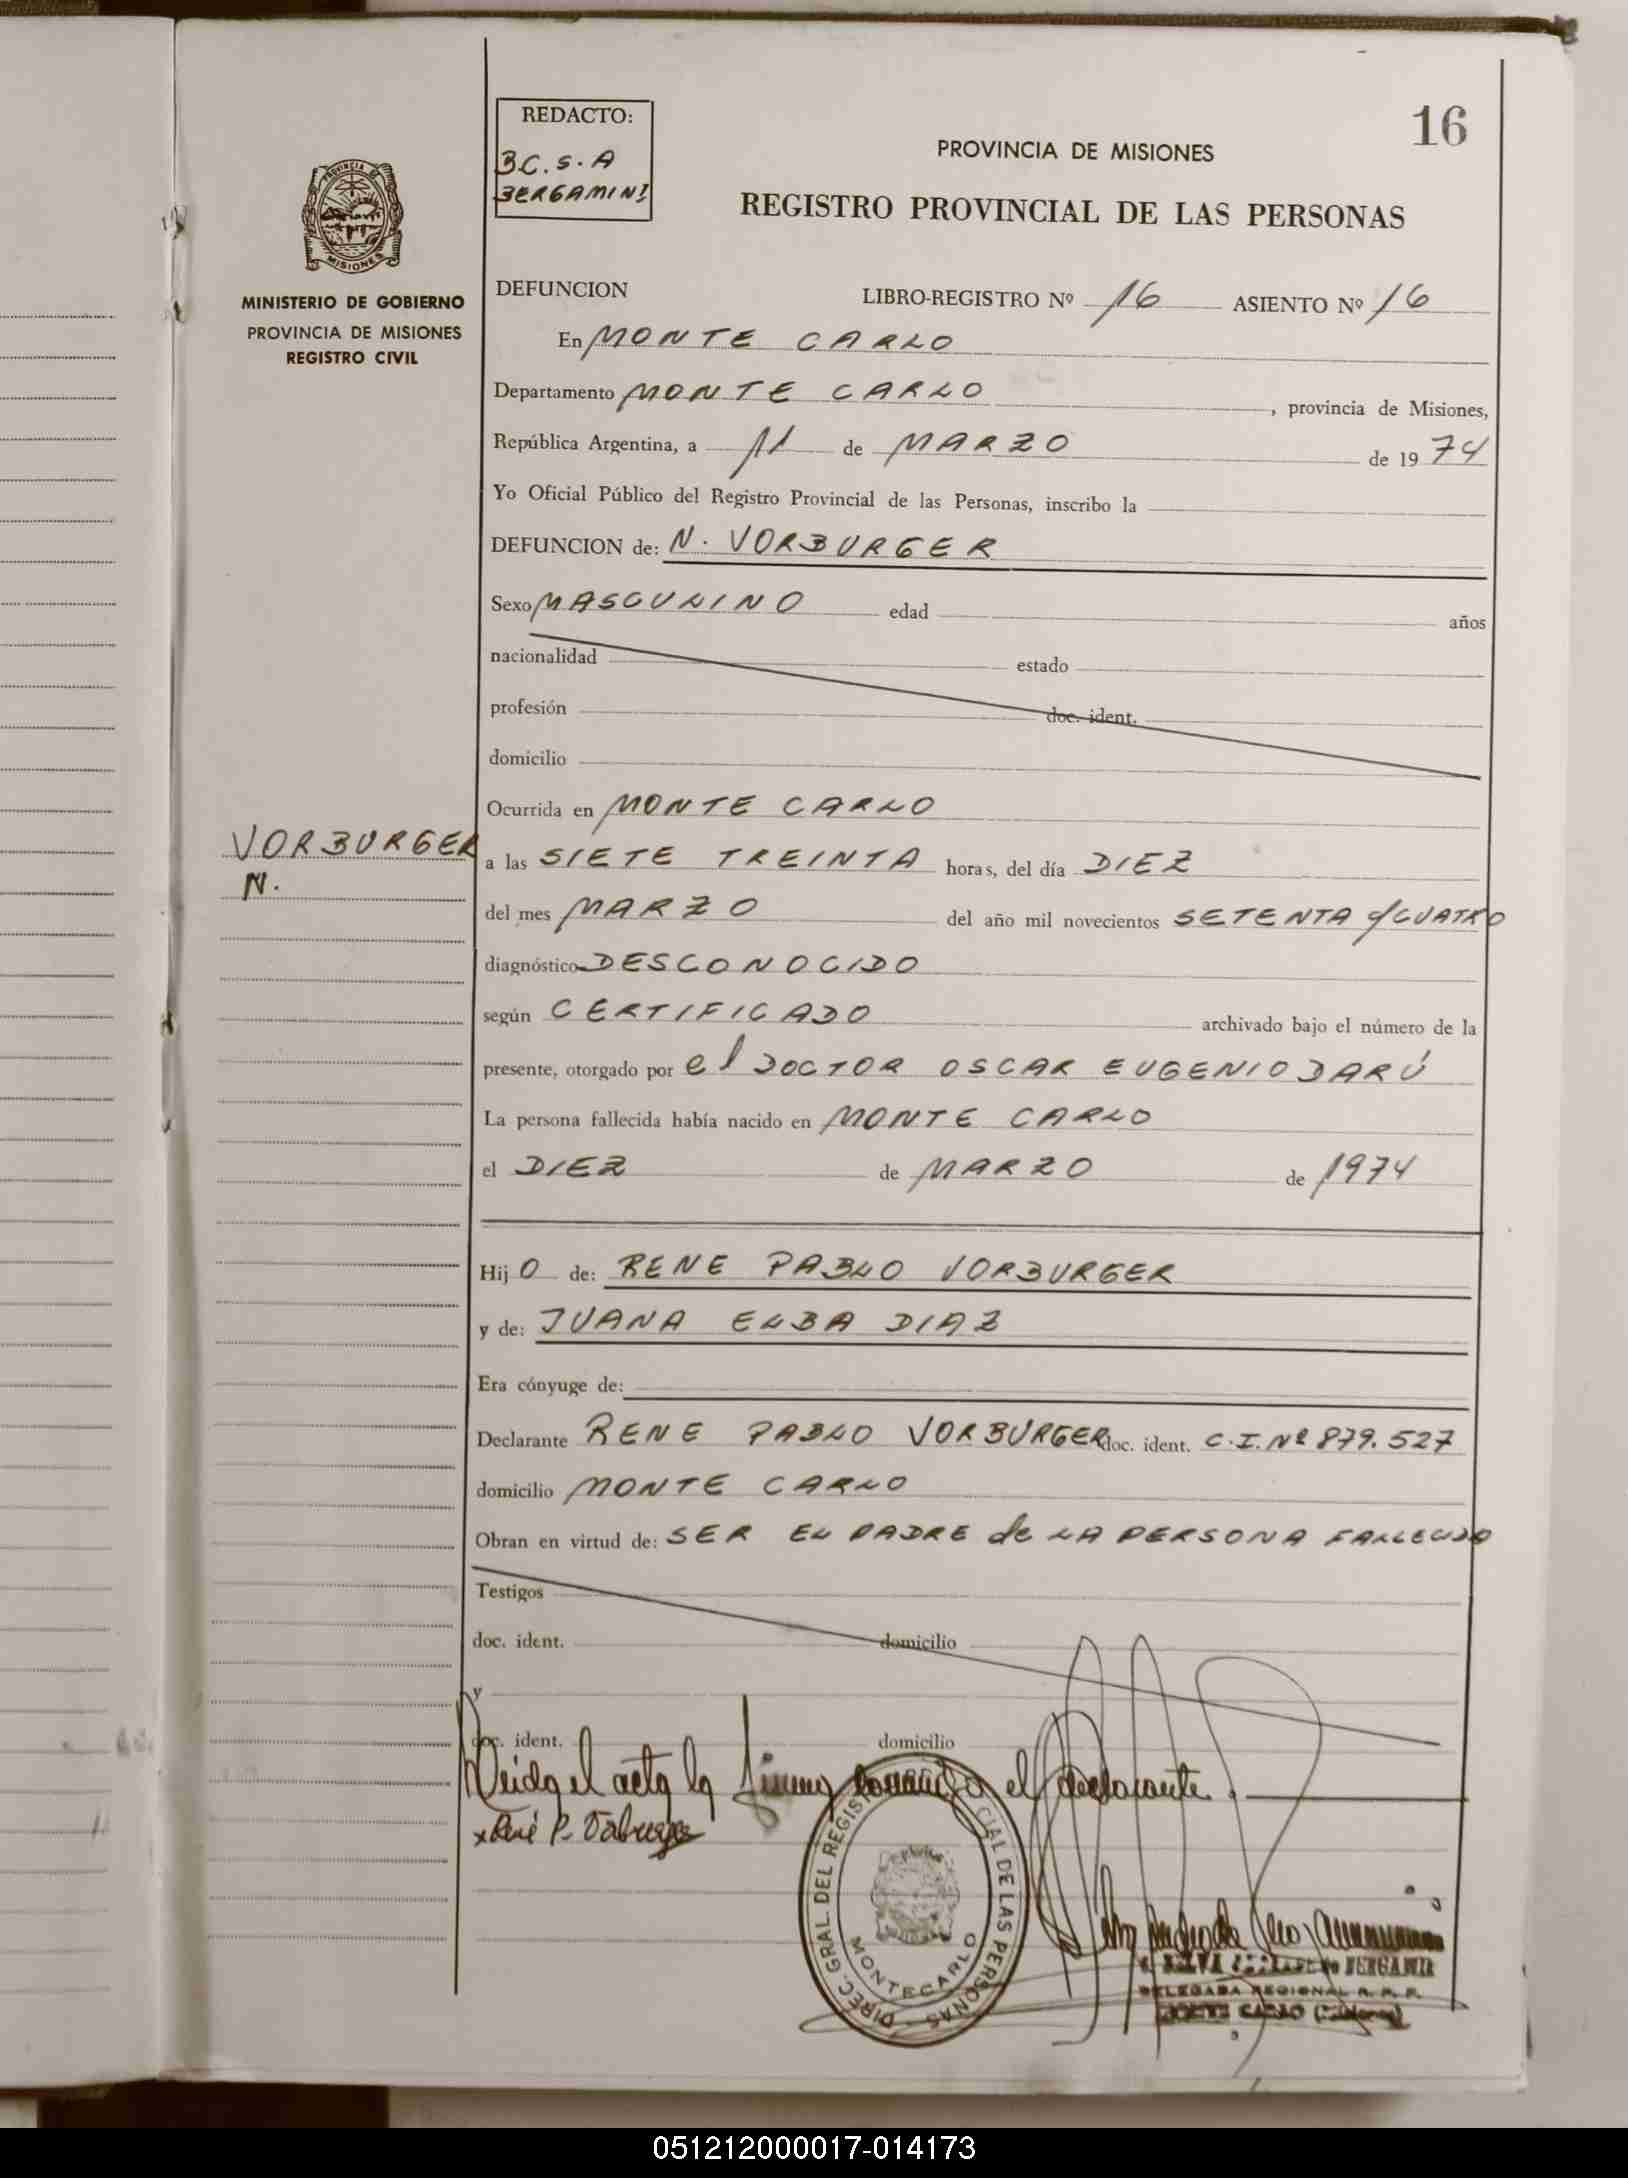 16
REDACTO:
B.C.S.A
BERGAMINI
PROVINCIA DE MISIONES
REGISTRO PROVINCIAL DE LAS PERSONAS
PROVINCIA DE
MISIONES
MINISTERIO DE GOBIERNO
PROVINCIA DE MISIONES
REGISTRO CIVIL
DEFUNCION LIBRO-REGISTRO Nº 16 ASIENTO Nº 16
En MONTE CARLO
Departamento MONTE CARLO , provincia de Misiones,
República Argentina, a 11 de MARZO de 1974
Yo Oficial Público del Registro Provincial de las Personas, inscribo la
DEFUNCION de: N. VORBURGER
Sexo MASCULINO edad años
nacionalidad estado
profesión doc. ident.
domicilio
Ocurrida en MONTE CARLO
VORBURGER
N.
a las SIETE TREINTA horas, del día DIEZ
del mes MARZO del año mil novecientos SETENTA y CUATRO
diagnóstico DESCONOCIDO
según CERTIFICADO archivado bajo el número de la
presente, otorgado por el DOCTOR OSCAR EUGENIO DARÚ
La persona fallecida había nacido en MONTE CARLO
el DIEZ de MARZO de 1974
Hijo de: RENE PABLO VORBURGER
y de: JUANA ELBA DIAZ
Era cónyuge de:
Declarante RENE PABLO VORBURGER doc. ident. C.I.Nº 879.527
domicilio MONTE CARLO
Obran en virtud de: SER EL PADRE de LA PERSONA FALLECIDO
Testigos
doc. ident. domicilio
y
doc. ident. domicilio
Leída el acta la firma el declarante.
René P. Vorburger
DIREC. GRAL DEL REGISTRO CIAL DE LAS PERSONAS
MONTECARLO
BERGAMINI
DELEGADA REGIONAL R. P. P.
MONTE CARLO
051212000017-014173